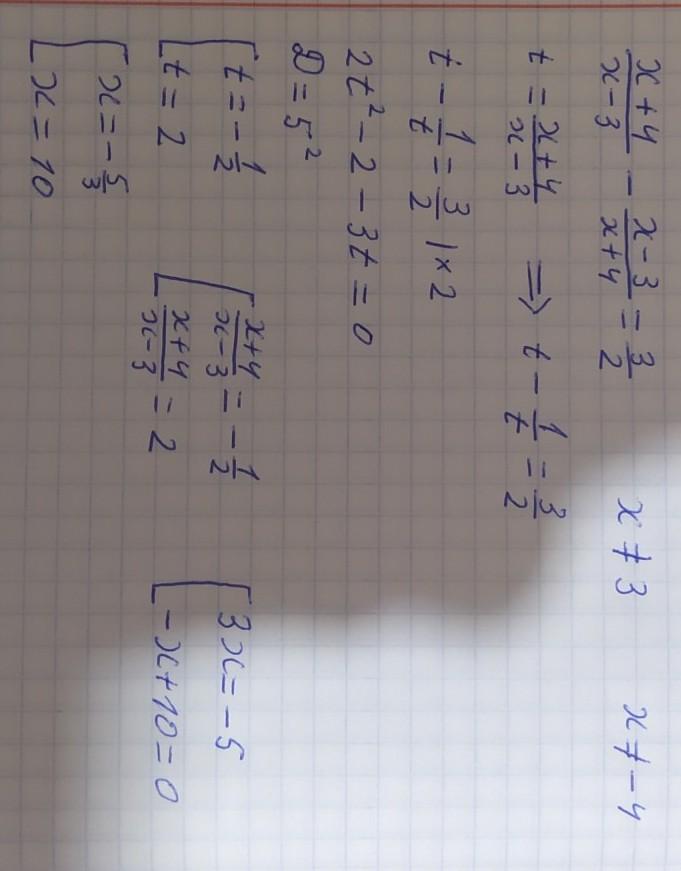 (x+4)/(x-3) - (x-3)/(x+4) = 3/2    x ≠ 3    x ≠ -4
t = (x+4)/(x-3) ⇒ t - 1/t = 3/2
t - 1/t = 3/2 | × 2
2t² - 2 - 3t = 0
D = 5²
[ t = -1/2    [ (x+4)/(x-3) = -1/2    [ 3x = -5
[ t = 2    [ (x+4)/(x-3) = 2    [ -x+10 = 0
[ x = -5/3
[ x = 10